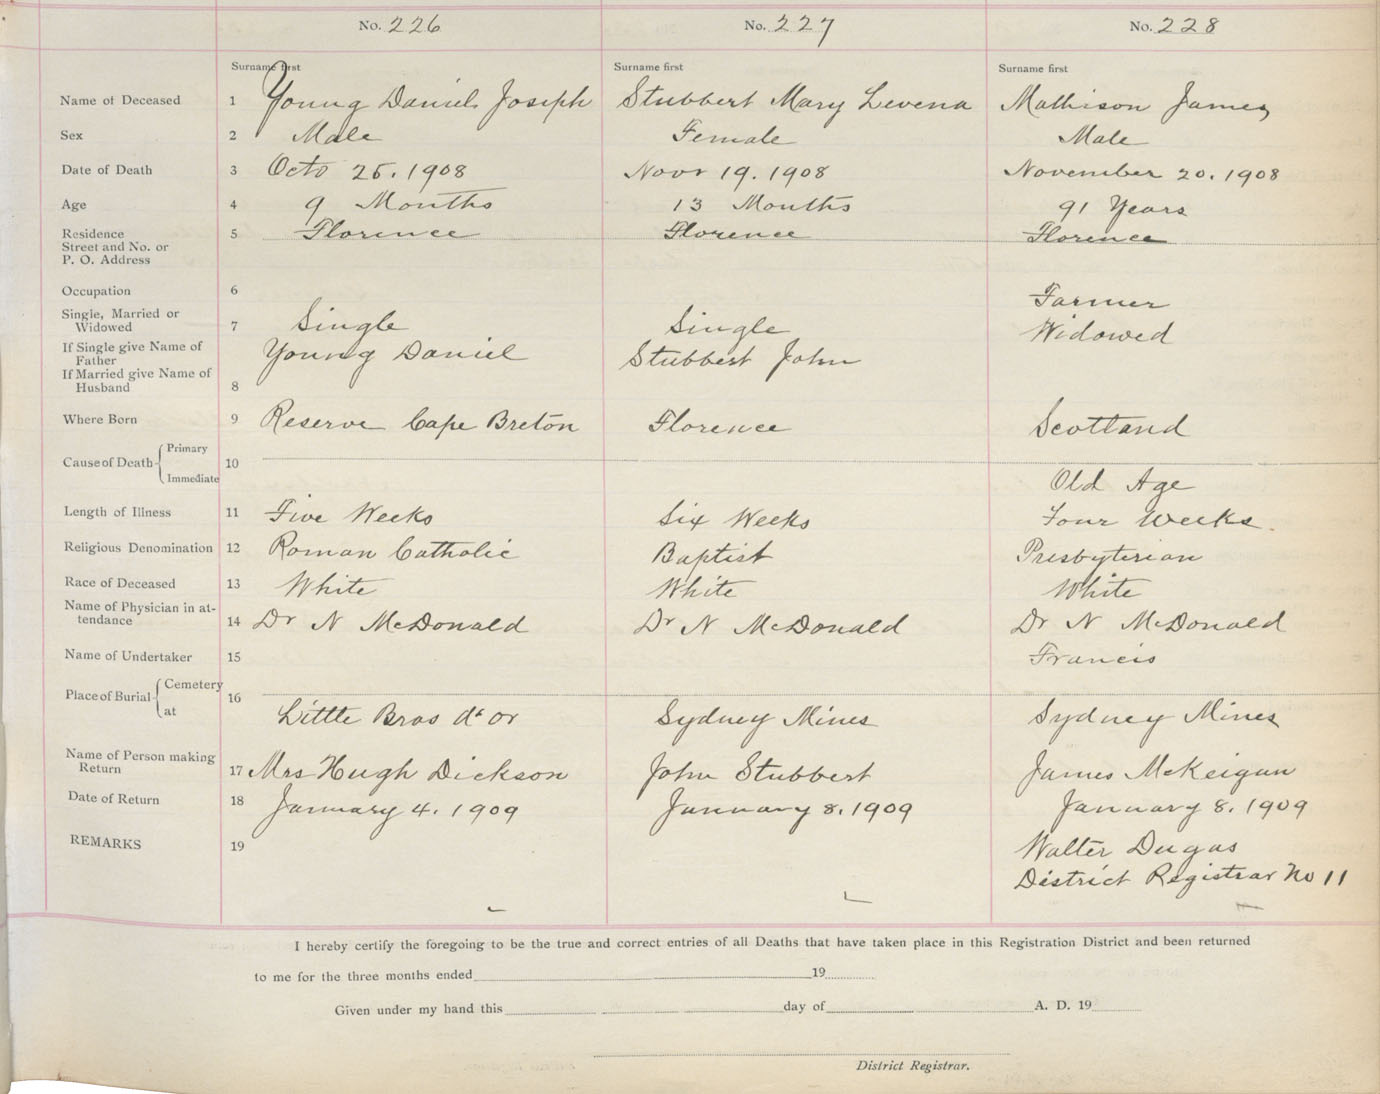 No. 226 No. 227 No. 228
Surname first Surname first Surname first
Name of Deceased 1 Young Daniel Joseph Stubbert Mary Levena Mathison James
Sex 2 Male Female Male
Date of Death 3 Octo 25. 1908 Novr 19. 1908 November 20. 1908
Age 4 9 Months 13 Months 91 Years
Residence 5 Florence Florence Florence
Street and No. or
P. O. Address
Occupation 6 Farmer
Single, Married or
Widowed 7 Single Single Widowed
If Single give Name of
Father Young Daniel Stubbert John
If Married give Name of
Husband 8
Where Born 9 Reserve Cape Breton Florence Scotland
Cause of Death { Primary
10
Immediate Old Age
Length of Illness 11 Five Weeks Six Weeks Four Weeks.
Religious Denomination 12 Roman Catholic Baptist Presbyterian
Race of Deceased 13 White White White
Name of Physician in at-
tendance 14 Dr N McDonald Dr N McDonald Dr N McDonald
Name of Undertaker 15 Francis
Place of Burial { Cemetery
16
at Little Bras d'or Sydney Mines Sydney Mines
Name of Person making
Return 17 Mrs Hugh Dickson John Stubbert James McKeigan
Date of Return 18 January 4. 1909 January 8. 1909 January 8. 1909
REMARKS 19 Walter Dugas
District Registrar No 11
I hereby certify the foregoing to be the true and correct entries of all Deaths that have taken place in this Registration District and been returned
to me for the three months ended 19
Given under my hand this day of A. D. 19
District Registrar.